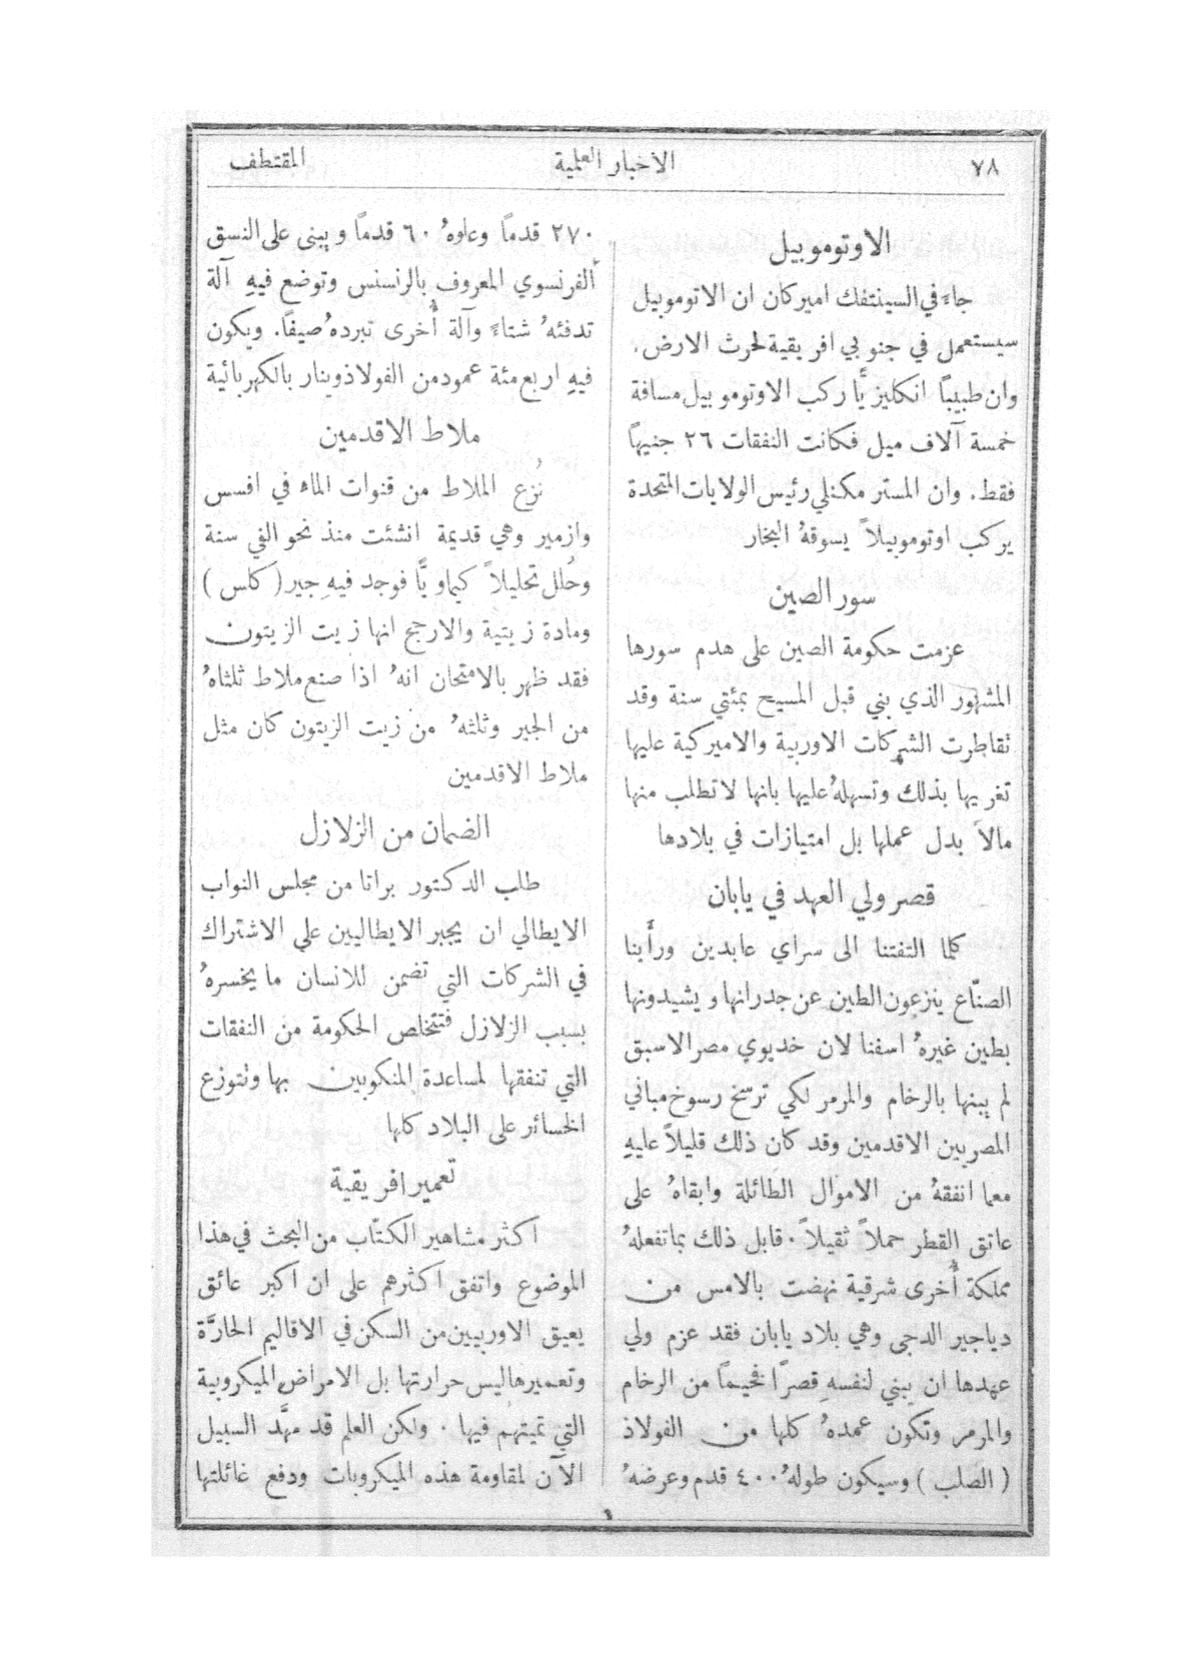 ٧٨ الاخبار العلمية المقتطف
الاوتوموبيل
جاءَ في السينتفك اميركان ان الاتوموبيل
سيستعمل في جنوبي افريقية لحرث الارض.
وان طبيبًا انكليزيًّا ركب الاوتوموبيل مسافة
خمسة آلاف ميل فكانت النفقات ٢٦ جنيهًا
فقط. وان المستر مكنلي رئيس الولايات المتحدة
يركب اوتوموبيلاً يسوقهُ البخار
سور الصين
عزمت حكومة الصين على هدم سورها
المشهور الذي بني قبل المسيح بمئتي سنة وقد
تقاطرت الشركات الاوربية والاميركية عليها
تغريها بذلك وتسهلهُ عليها بانها لا تطلب منها
مالاً بدل عملها بل امتيازات في بلادها
قصر ولي العهد في يابان
كلما التفتنا الى سراي عابدين ورأَينا
الصنّاع ينزعون الطين عن جدرانها ويشيدونها
بطين غيرهُ اسفنا لان خديوي مصر الاسبق
لم يبنها بالرخام والمرمر لكي ترسخ رسوخ مباني
المصريين الاقدمين وقد كان ذلك قليلاً عليهِ
معما انفقهُ من الاموال الطائلة وابقاهُ على
عاتق القطر حملاً ثقيلاً. قابل ذلك بما تفعلهُ
مملكة أُخرى شرقية نهضت بالامس من
دياجير الدجى وهي بلاد يابان فقد عزم ولي
عهدها ان يبني لنفسهِ قصرًا فخيمًا من الرخام
والمرمر وتكون عمدهُ كلها من الفولاذ
(الصلب) وسيكون طولهُ ٤٠٠ قدم وعرضهُ
٢٧٠ قدمًا وعلوهُ ٦٠ قدمًا ويبنى على النسق
الفرنسوي المعروف بالرنسنس وتوضع فيهِ آلة
تدفئهُ شتاءً وآلة أُخرى تبردهُ صيفًا. ويكون
فيهِ اربع مئة عمود من الفولاذ وينار بالكهربائية
ملاط الاقدمين
نُزع الملاط من قنوات الماء في افسس
وازمير وهي قديمة انشئت منذ نحو الفي سنة
وحُلل تحليلاً كيماويًّا فوجد فيهِ جير (كلس)
ومادة زيتية والارجح انها زيت الزيتون
فقد ظهر بالامتحان انهُ اذا صنع ملاط ثلثاهُ
من الجير وثلثهُ من زيت الزيتون كان مثل
ملاط الاقدمين
الضمان من الزلازل
طلب الدكتور براتا من مجلس النواب
الايطالي ان يجبر الايطاليين على الاشتراك
في الشركات التي تضمن للانسان ما يخسرهُ
بسبب الزلازل فتتخلص الحكومة من النفقات
التي تنفقها لمساعدة المنكوبين بها وتتوزع
الخسائر على البلاد كلها
تعمير افريقية
اكثر مشاهير الكتّاب من البحث في هذا
الموضوع واتفق اكثرهم على ان اكبر عائق
يعيق الاوربيين من السكن في الاقاليم الحارَّة
وتعميرها ليس حرارتها بل الامراض الميكروبية
التي تميتهم فيها. ولكن العلم قد مهَّد السبيل
الآن لمقاومة هذه الميكروبات ودفع غائلتها